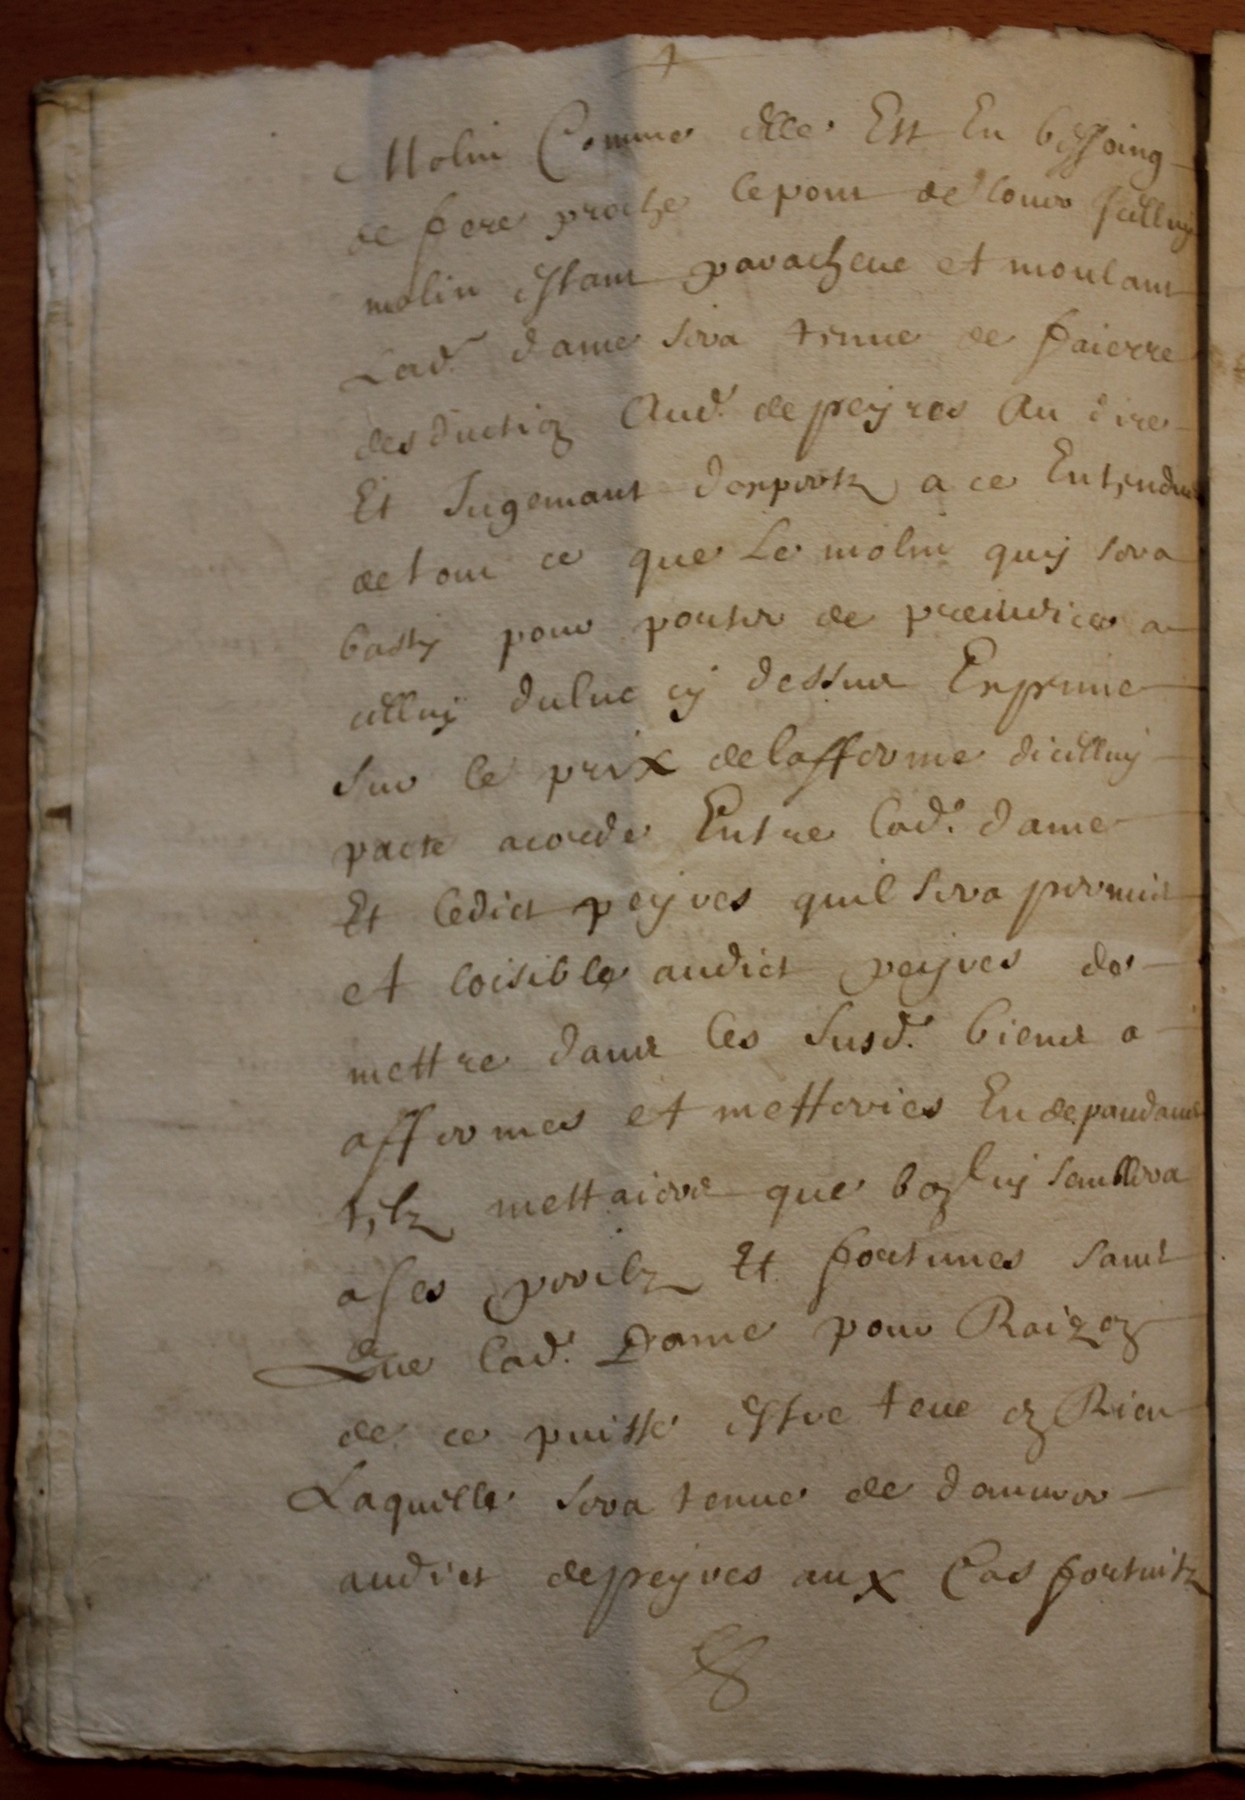 Molin Comme elle Est En bessoing
de fere proche le pont de louvo jcelluy
molin estant parachevé et moulant
Lad. dame sera tenue de faierre
desduction Aud. depeyres Au dire
Et Jugemant dexpertz a ce Entendus
de tout ce que Le molin quy sera
basty pour porter de preiudice a
celluy duluc cy dessus Exprime
sur le prix delafferme dicelluy
pacte acorde Entre lad. dame
Et ledict peyres quil sera permis
et loisible audict peyres de
mettre dans les susd. biens a
affermes et metteries En depandans
telz mettaiers que bon luy semblera
a ses perilz Et fortunes sans
Que lad. Dame pour Raizon
de ce puisse estre teneue en Rien
Laquelle sera tenue de
audict depeyres aux Cas fortuitz